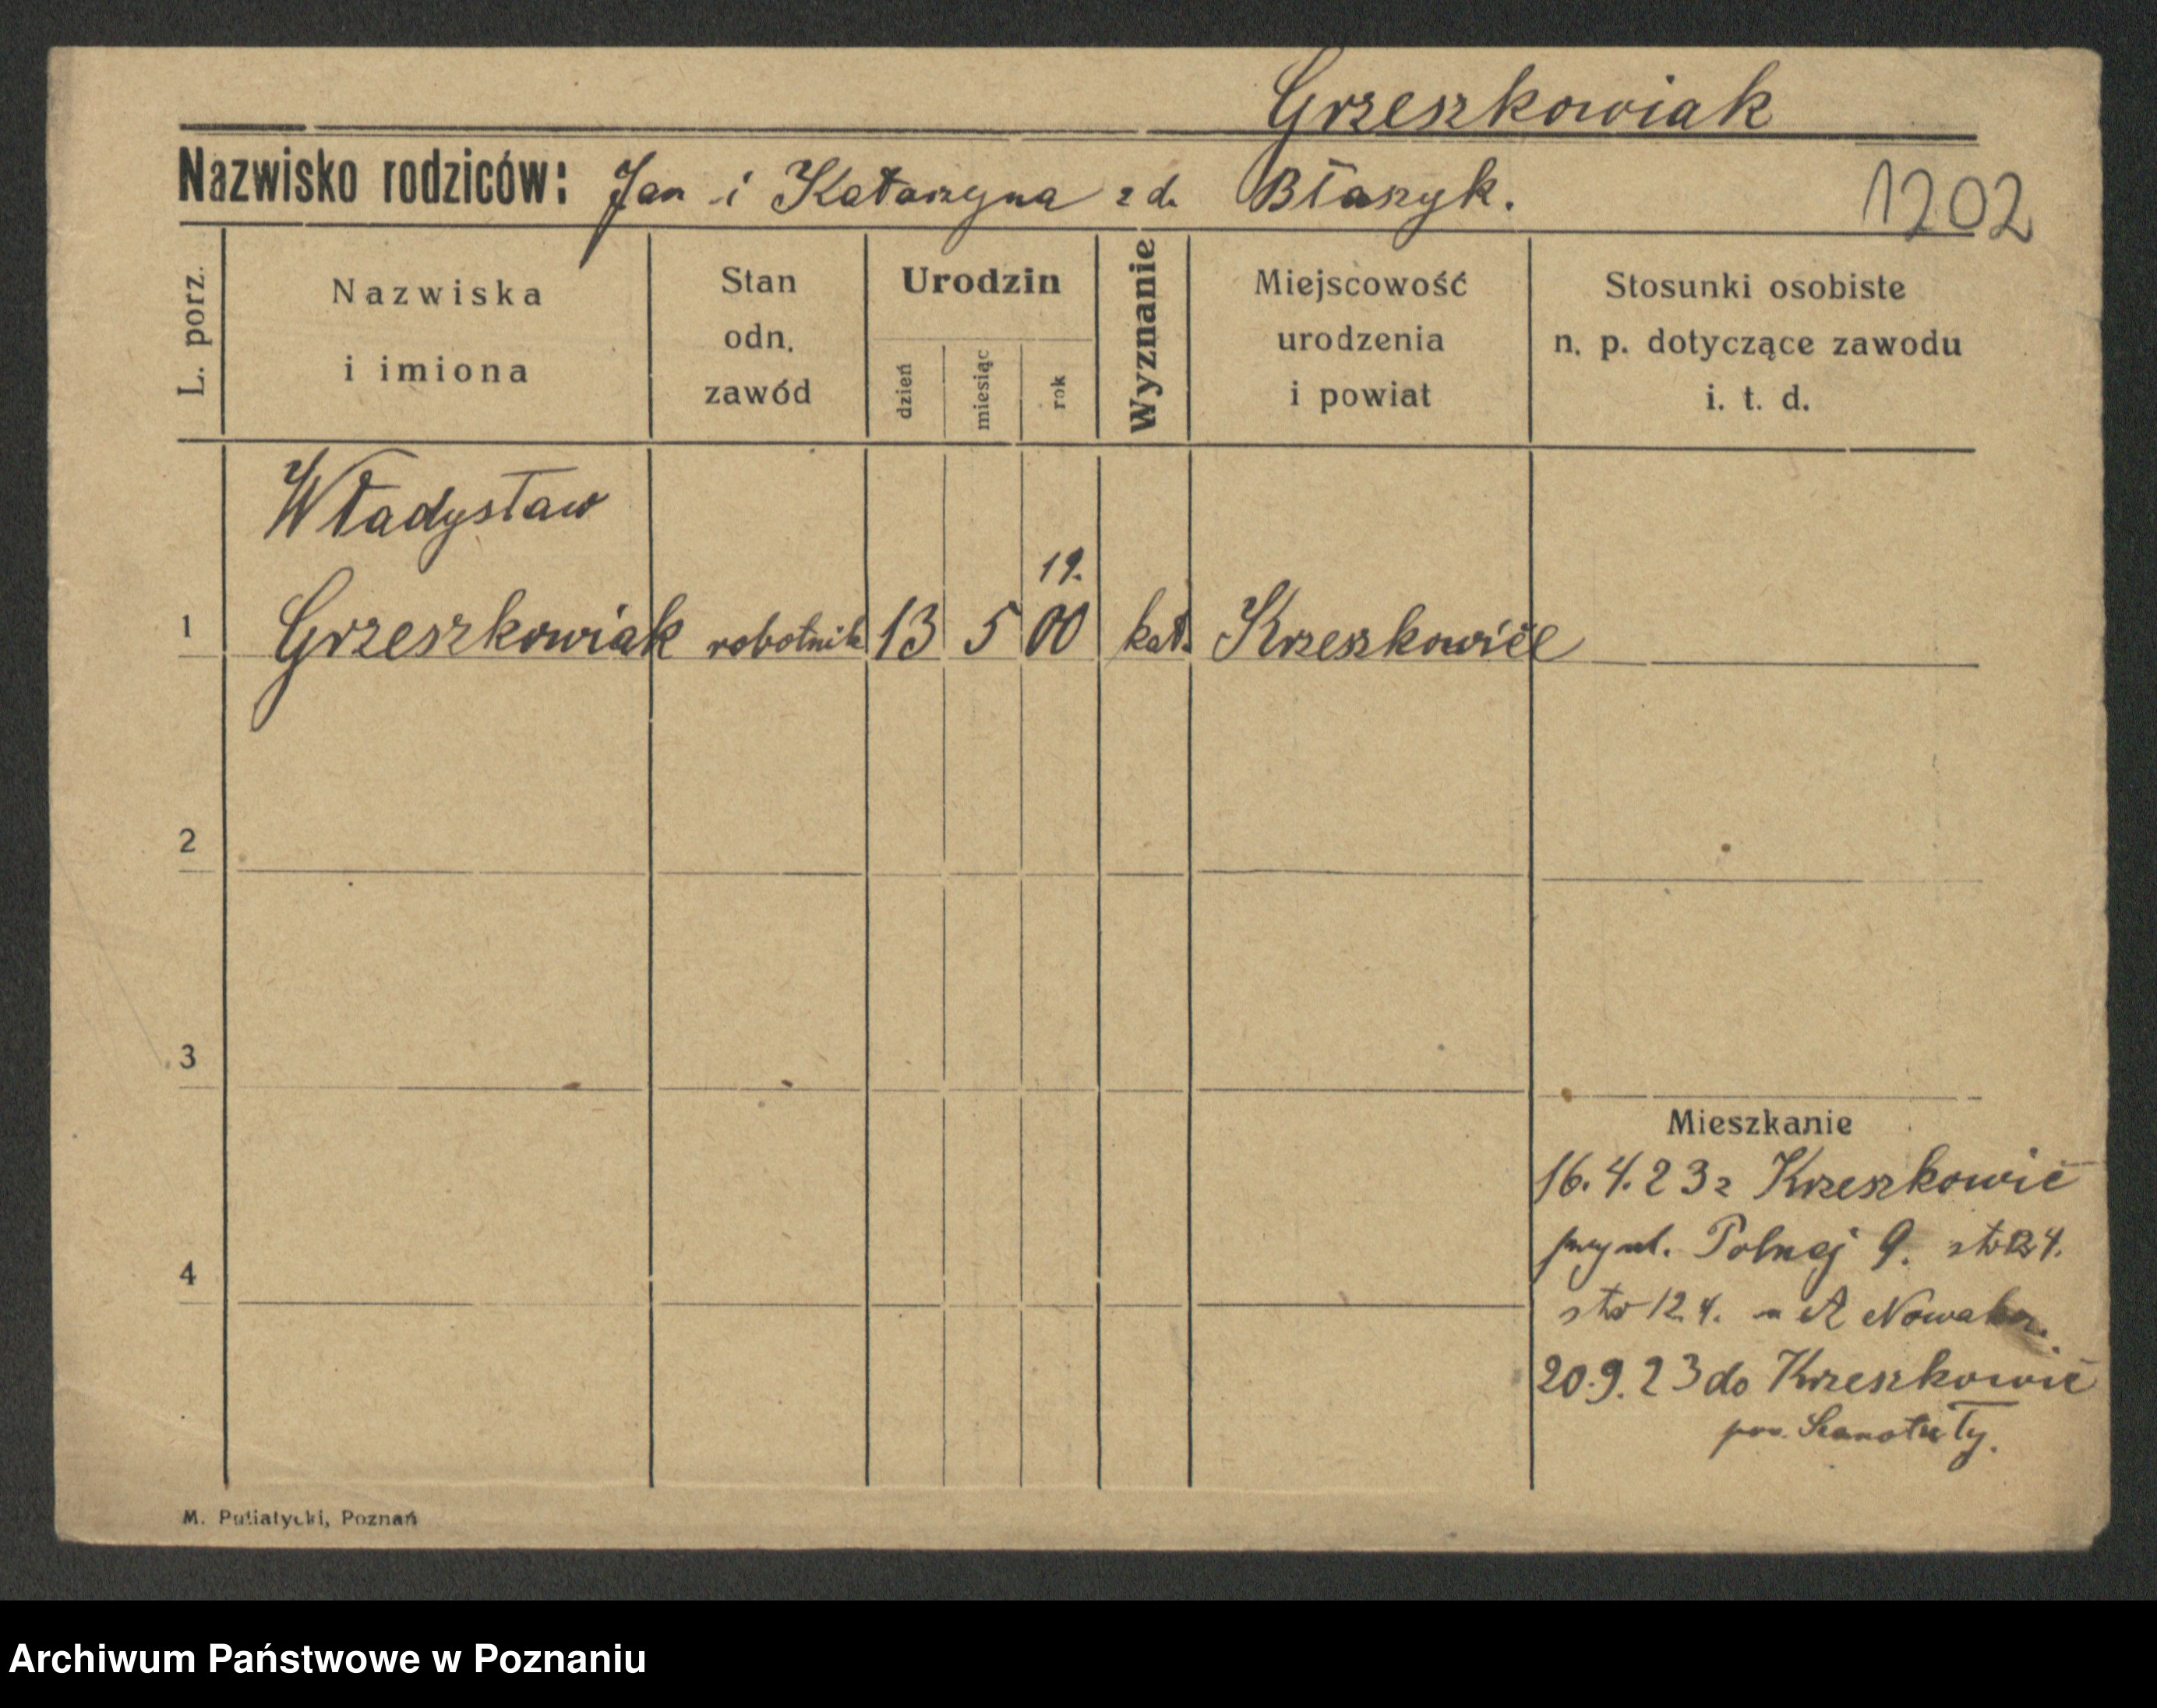 Grzeszkowiak
Nazwisko rodziców: Jan i Katarzyna z d. Błaszyk.
1202
L. porz.
Nazwiska
i imiona
Stan
odn.
zawód
Urodzin
dzień
miesiąc
rok
Wyznanie
Miejscowość
urodzenia
i powiat
Stosunki osobiste
n. p. dotyczące zawodu
i. t. d.
Władysław
19.
1 Grzeszkowiak robotnik 13 5 00 kat. Krzeszkowice
2
3
Mieszkanie
16.4.23 z Krzeszkowic
przy ul. Polnej 9.
4
12.4. u A Nowaka.
20.9.23 do Krzeszkowic
pow. Szamotuły.
M. Putiatycki, Poznań
Archiwum Państwowe w Poznaniu